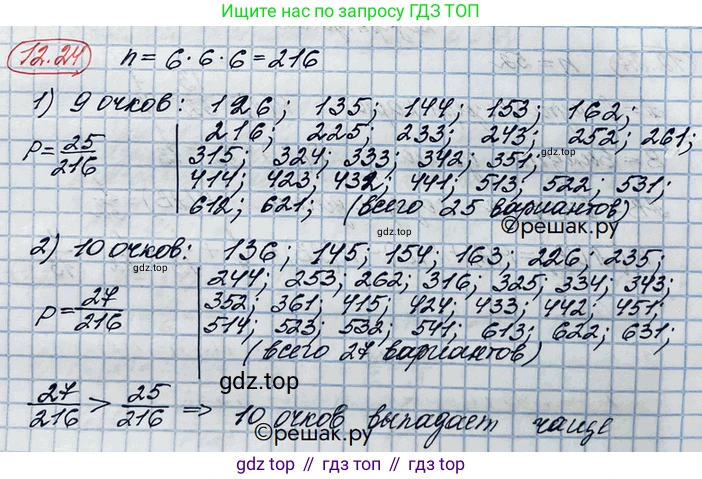 Ищите нас по запросу ГДЗ ТОП
12.24 n = 6 · 6 · 6 = 216
1) 9 очков: 126; 135; 144; 153; 162;
216; 225; 233; 243; 252; 261;
P = 25/216
315; 324; 333; 342; 351;
гдз.top
414; 423; 432; 441; 513; 522; 531;
612; 621; (всего 25 вариантов)
©решак.ру
2) 10 очков: 136; 145; 154; 163; 226; 235;
гдз.top
244; 253; 262; 316; 325; 334; 343;
P = 27/216
352; 361; 415; 424; 433; 442; 451;
514; 523; 532; 541; 613; 622; 631;
(всего 27 вариантов)
©решак.ру
гдз.top
27/216 > 25/216 => 10 очков выпадает чаще
©решак.ру
гдз top // гдз топ // gdz top